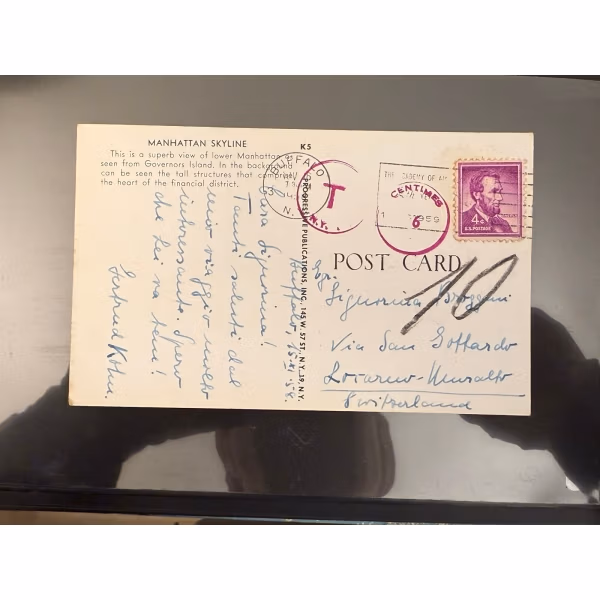 MANHATTAN SKYLINE
This is a superb view of lower Manhattan
seen from Governors Island. In the background
can be seen the tall structures that comprise
the heart of the financial district.
K5
Buffalo
Cara Signorina!
Tanti saluti dal
mio viaggio molto
interessante. Spero
che Lei sta bene!
Gertrud Kohn.
PROGRESSIVE PUBLICATIONS, INC., 145 W. 57 ST., N.Y. 19, N.Y.
BUFFALO
N.Y.
T
CENTIMES
6
4¢
U.S. POSTAGE
POST CARD
10
Signorina
Via San Gottardo
Locarno-Muralto
Switzerland